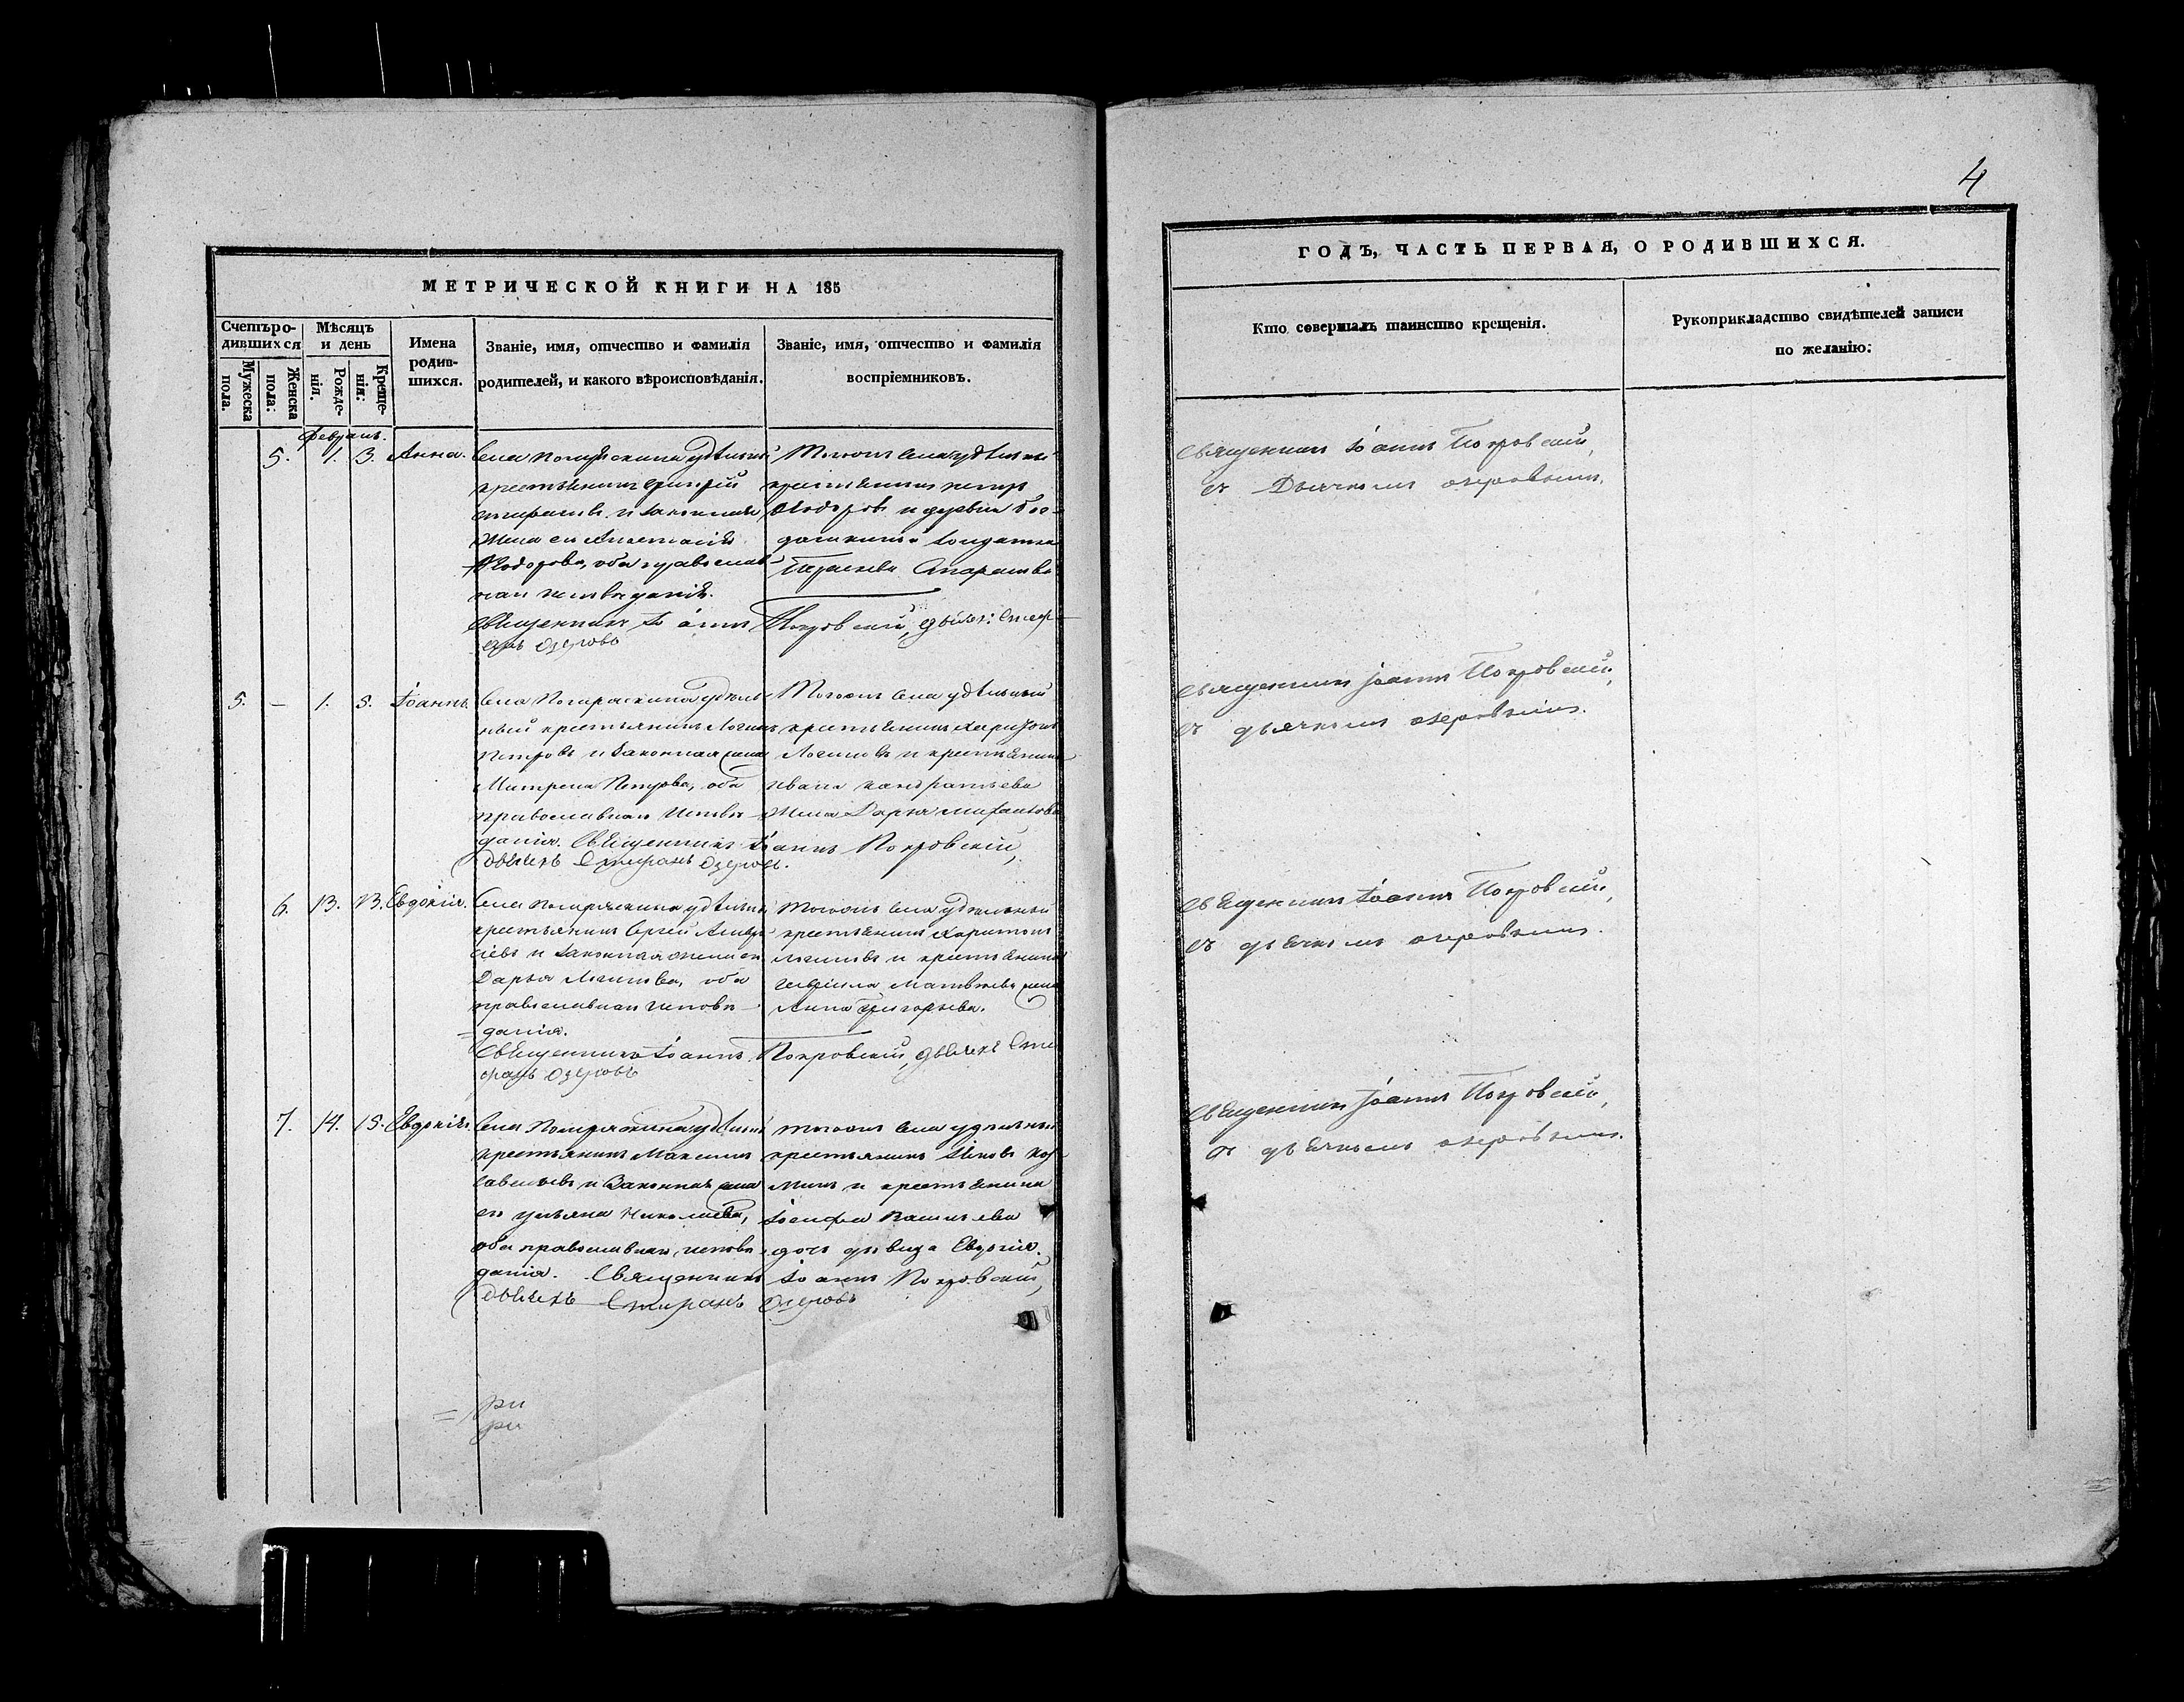 4
МЕТРИЧЕСКОЙ КНИГИ НА 185
Счетъ родившихся
Мѣсяцъ и день
Мужеска пола.
Женска пола:
Рожденія.
Крещенія:
Имена родившихся.
Званіе, имя, отчество и фамилія
родителей, и какого вѣроисповѣданія.
Званіе, имя, отчество и фамилія
воспріемниковъ.
Февраль.
5. 1. 3. Анна.
Села удѣльный
крестьянинъ Григорій
и законная
жена его Анастасія
Ѳедорова, оба православ
наго исповѣданія.
Священникъ Іоаннъ Покровскій, дьячекъ Стеф
анъ Озеровъ
Тогожъ села удѣльный
крестьянинъ Петръ
Ѳедоровъ и деревни
солдатка
5. — 1. 3. Іоаннъ.
Села удѣль
ный крестьянинъ Логинъ
Петровъ и законная жена
Матрена Петрова, оба
православнаго исповѣ
данія. Священникъ Іоаннъ Покровскій,
дьячекъ Стефанъ Озеровъ.
Тогожъ села удѣльный
крестьянинъ Харитонъ
Логиновъ и крестьянина
Ивана Кондратьева
жена Дарья
6. 13. 13. Евдокія.
Села удѣльный
крестьянинъ Сергій Алекс
ѣевъ и законная жена его
Дарья Логинова, оба
православнаго исповѣ
данія.
Священникъ Іоаннъ Покровскій, дьячекъ Сте
фанъ Озеровъ
Тогожъ села удѣльный
крестьянинъ Харитонъ
Логиновъ и крестьянина
Матвѣева жена
Анна Григорьева.
7. 14. 15. Евдокія.
Села удѣльный
крестьянинъ Максимъ
Савельевъ и законная жена
его Ульяна Николаева,
оба православнаго исповѣ
данія. Священникъ Іоаннъ Покровскій,
дьячекъ Стефанъ Озеровъ
Тогожъ села удѣльный
крестьянинъ Яковъ Коз
минъ и крестьянина
Іосифа Васильева
дочь дѣвица Евдокія.
ГОДЪ, ЧАСТЬ ПЕРВАЯ, О РОДИВШИХСЯ.
Кто совершалъ таинство крещенія.
Рукоприкладство свидѣтелей записи
по желанію:
Священникъ Іоаннъ Покровскій,
съ Дьячкомъ Озеровымъ.
Священникъ Іоаннъ Покровскій,
съ дьячкомъ Озеровымъ.
Священникъ Іоаннъ Покровскій,
съ дьячкомъ Озеровымъ.
Священникъ Іоаннъ Покровскій,
съ дьячкомъ Озеровымъ.